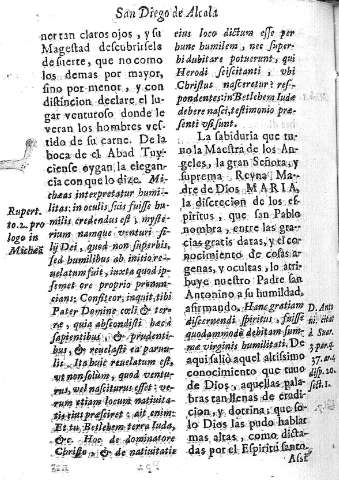 San Diego de Alcala
nortan claros ojos, y su
Magestad descubriselo
de suerte, que no como
los demas por mayor,
sino por menor, y con
distincion declare el lu-
gar venturoso donde le
veran los hombres ves-
tido de su carne. De la
boca de el Abad Tuy-
ciense oygan la elegan-
cia con que lo dize. Mi-
chæas interpretatur humi-
litas: in oculis suis fuisse hu-
milis credendus est; myste-
rium namque venturi fi-
lij Dei, quod non superbis,
sed humilibus ab initio re-
uelatum fuit, iuxta quod ip-
semet ore proprio pronun-
cians: Confiteor, inquit, tibi
Pater Domine cœli & ter-
re, quia abscondisti hæc à
sapientibus, & prudenti-
bus, & reuelasti ea paruu-
lis. Ita huic reuelatum est,
vt non solum, quod ventu-
rus, vel nasciturus esset: ve-
rum etiam locum natiuita-
tis eius præsciret, ait enim:
Et tu Betlehem terra Iuda,
&c. Hoc de dominatore
Christo, & de natiuitate
Rupert.
to. 2. pro
logo in
Micheã
eius loco dictum esse per
hunc humilem, nec super-
bi dubitare potuerunt, qui
Herodi sciscitanti, vbi
Christus nasceretur: res-
pondentes: in Betlehem Iudæ
debere nasci, testimonio præ-
senti vsi sunt.
La sabiduria que tu-
uo la Maestra de los An-
geles, la gran Señora, y
suprema Reyna Ma-
dre de Dios MARIA,
la discrecion de los es-
piritus, que san Pablo
nombra, entre las gra-
cias gratis datas, y el co-
nocimiento de cosas a-
genas, y ocultas, lo atri-
buye nuestro Padre san
Antonino a su humildad,
afirmando, Hanc gratiam
discernendi spiritus, fuisse
quodammodò debitam sum-
mæ virginis humilitati. De
aqui salio aquel altissimo
conocimiento que tuuo
de Dios, aquellas pala-
bras tan llenas de erudi-
cion, y dotrina, que so-
lo Dios las pudo hablar
mas altas, como dicta-
das por el Espiritu santo.
D. Anto
ni. citat
à Suar.
3. par. q.
37. ar. 4
disp. 20.
sect. 1.
Assi